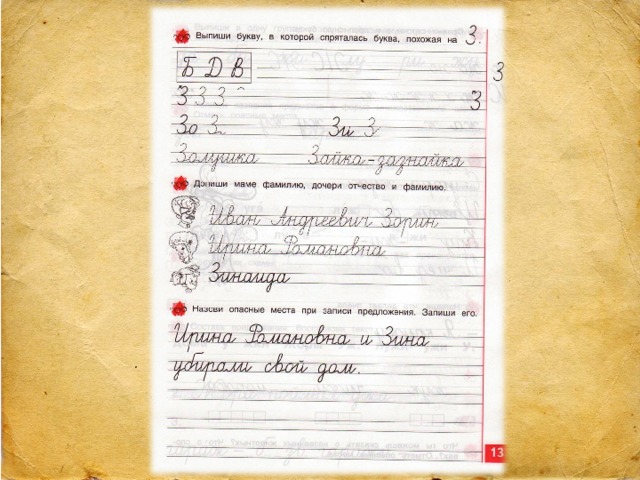 Выпиши букву, в которой спряталась буква, похожая на З.
Б Д В
З
З З З З
Зо З Зи З
Золушка Зайка-зазнайка
Допиши маме фамилию, дочери отчество и фамилию.
Иван Андреевич Зорин
Ирина Романовна
Зинаида
Назови опасные места при записи предложения. Запиши его.
Ирина Романовна и Зина
убирали свой дом.
13